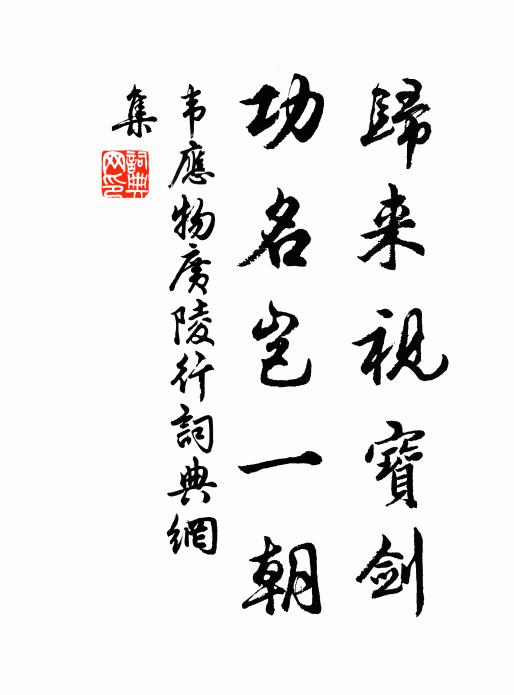 歸来視寶劍
功名岂一朝
韦應物廣陵行詞典網
集
詞典网印